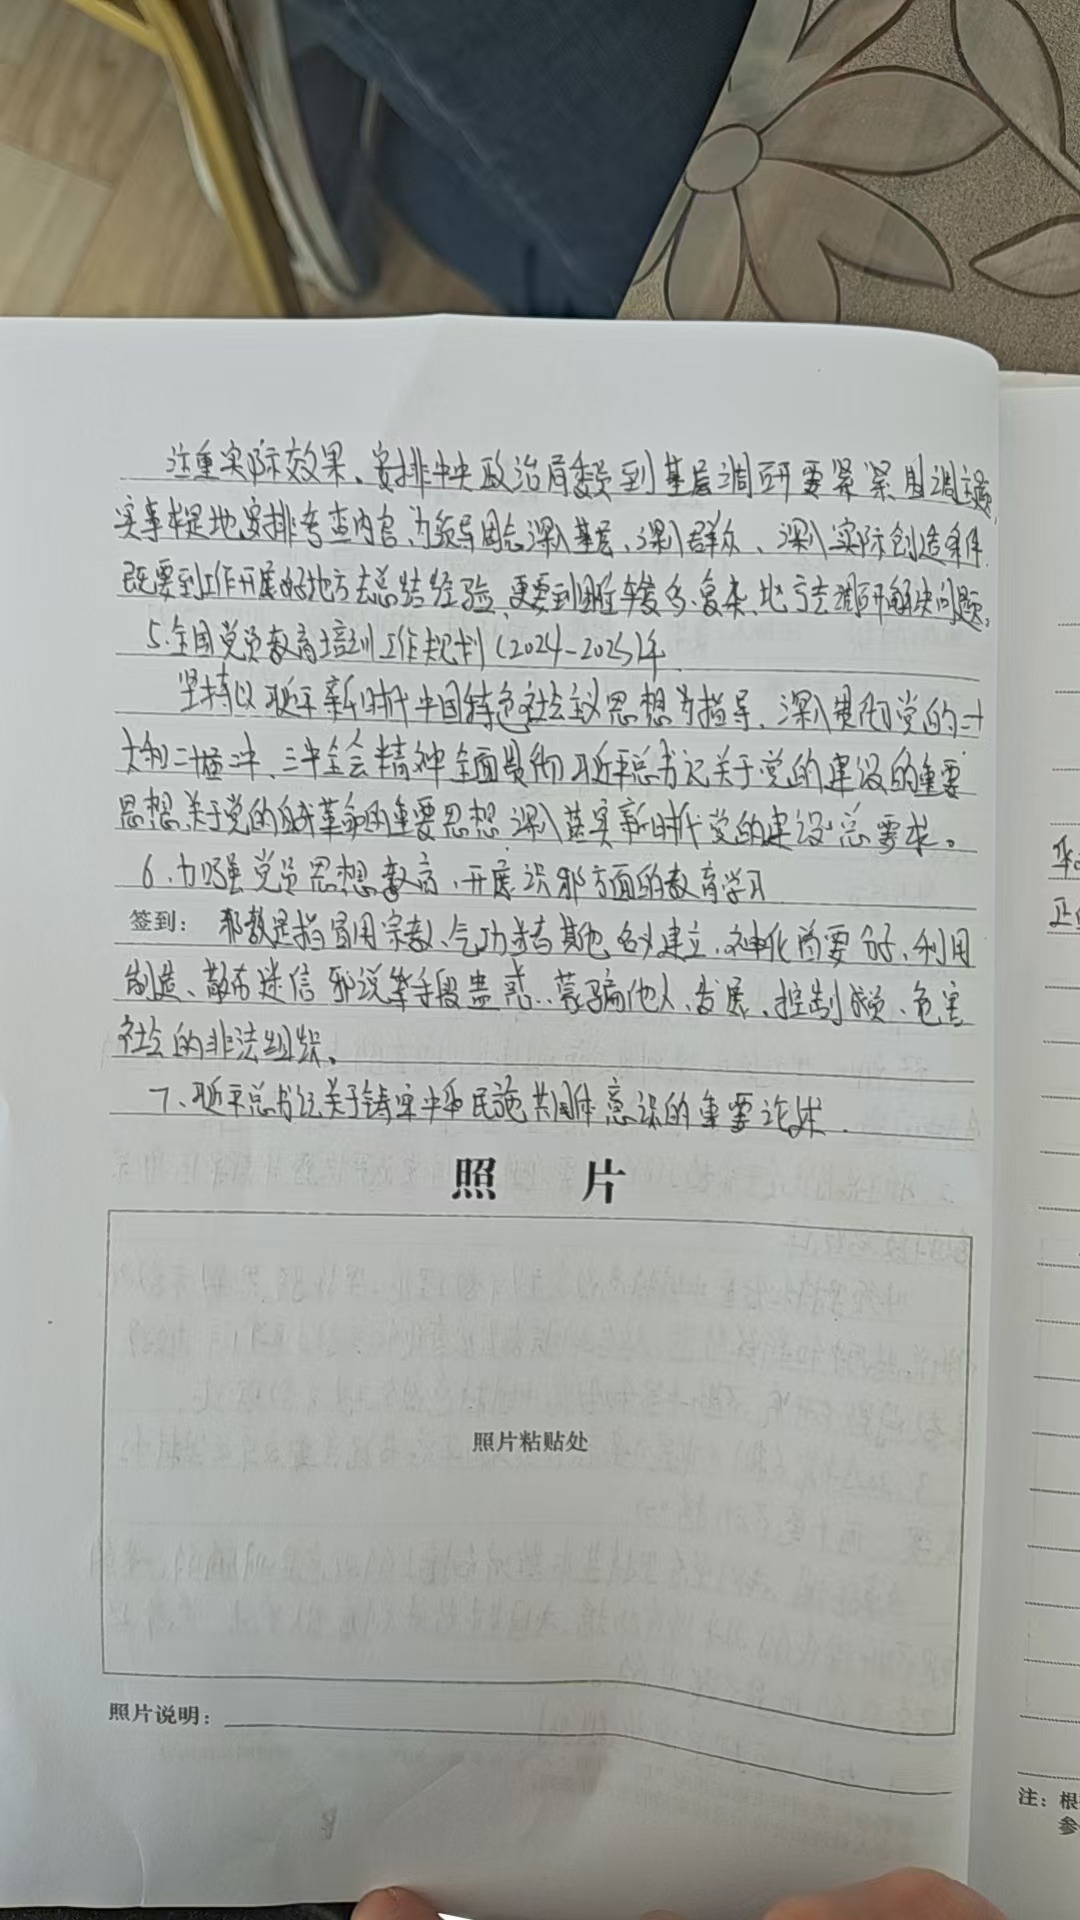 注重实际效果、安排中央政治局委员到基层调研要紧紧围调主题,
实事求是地安排考查内容、为领导同志深入基层、深入群众、深入实际创造条件.
既要到工作开展好地方去总结经验、更要到困难较多、复杂、地方去调研解决问题。
5.全国党员教育培训工作规划(2024-2025)年
坚持以习近平新时代中国特色社会主义思想为指导、深入贯彻党的二十
大和二十届二中、三中全会精神全面贯彻习近平总书记关于党的建设的重要
思想、关于党的自我革命的重要思想 深入落实新时代党的建设总要求。
6.加强党员思想教育、开展识邪方面的教育学习
签到: 邪教是指冒用宗教、气功或者其他名义建立、神化首要分子、利用
制造、散布迷信邪说等手段蛊惑、蒙骗他人、发展、控制成员、危害
社会的非法组织、
7、习近平总书记关于铸牢中华民族共同体意识的重要论述.
照 片
照片粘贴处
照片说明:
正
注:根
参